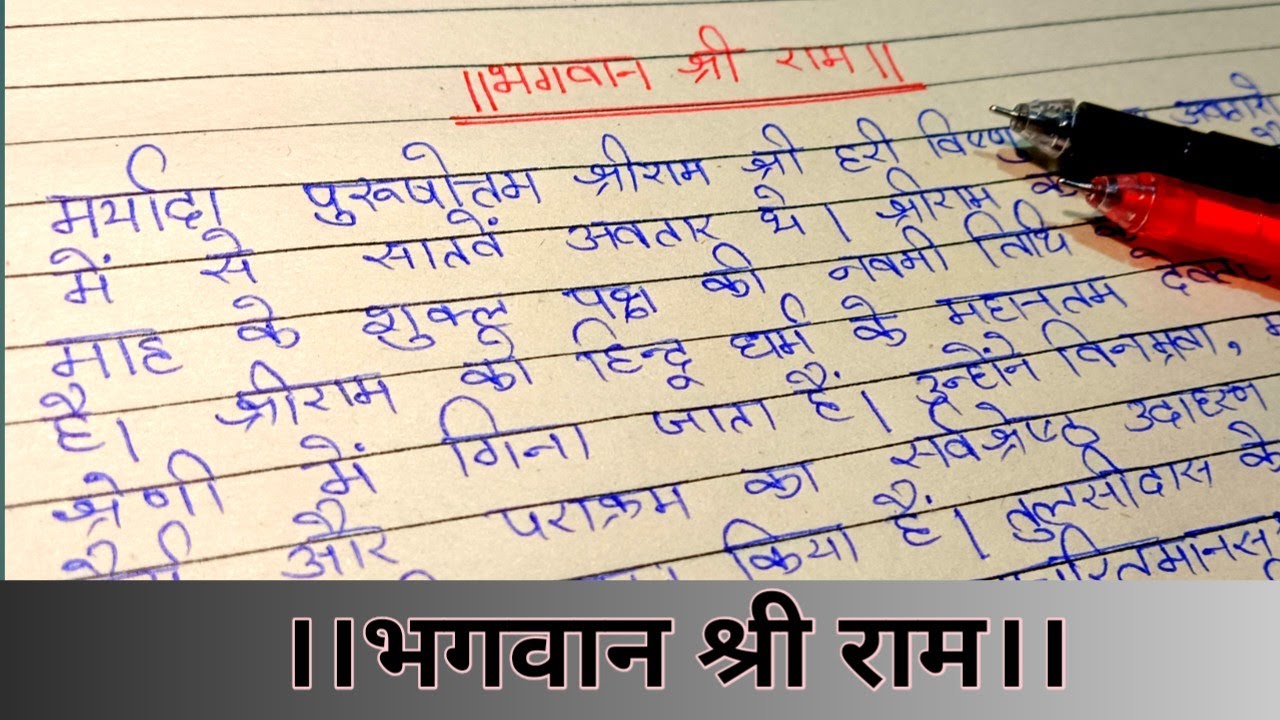 ||भगवान श्री राम||
मर्यादा पुरूषोत्तम श्रीराम श्री हरी विष्णु
में से सातवें अवतार थे। श्रीराम
माह के शुक्ल पक्ष की नवमी तिथि
है। श्रीराम को हिन्दू धर्म के महानतम
श्रेणी में गिना जाता हैं। इन्होंने विनम्रता,
और पराक्रम का सर्वश्रेष्ठ उदाहरण
किया हैं। तुलसीदास के
।।भगवान श्री राम।।